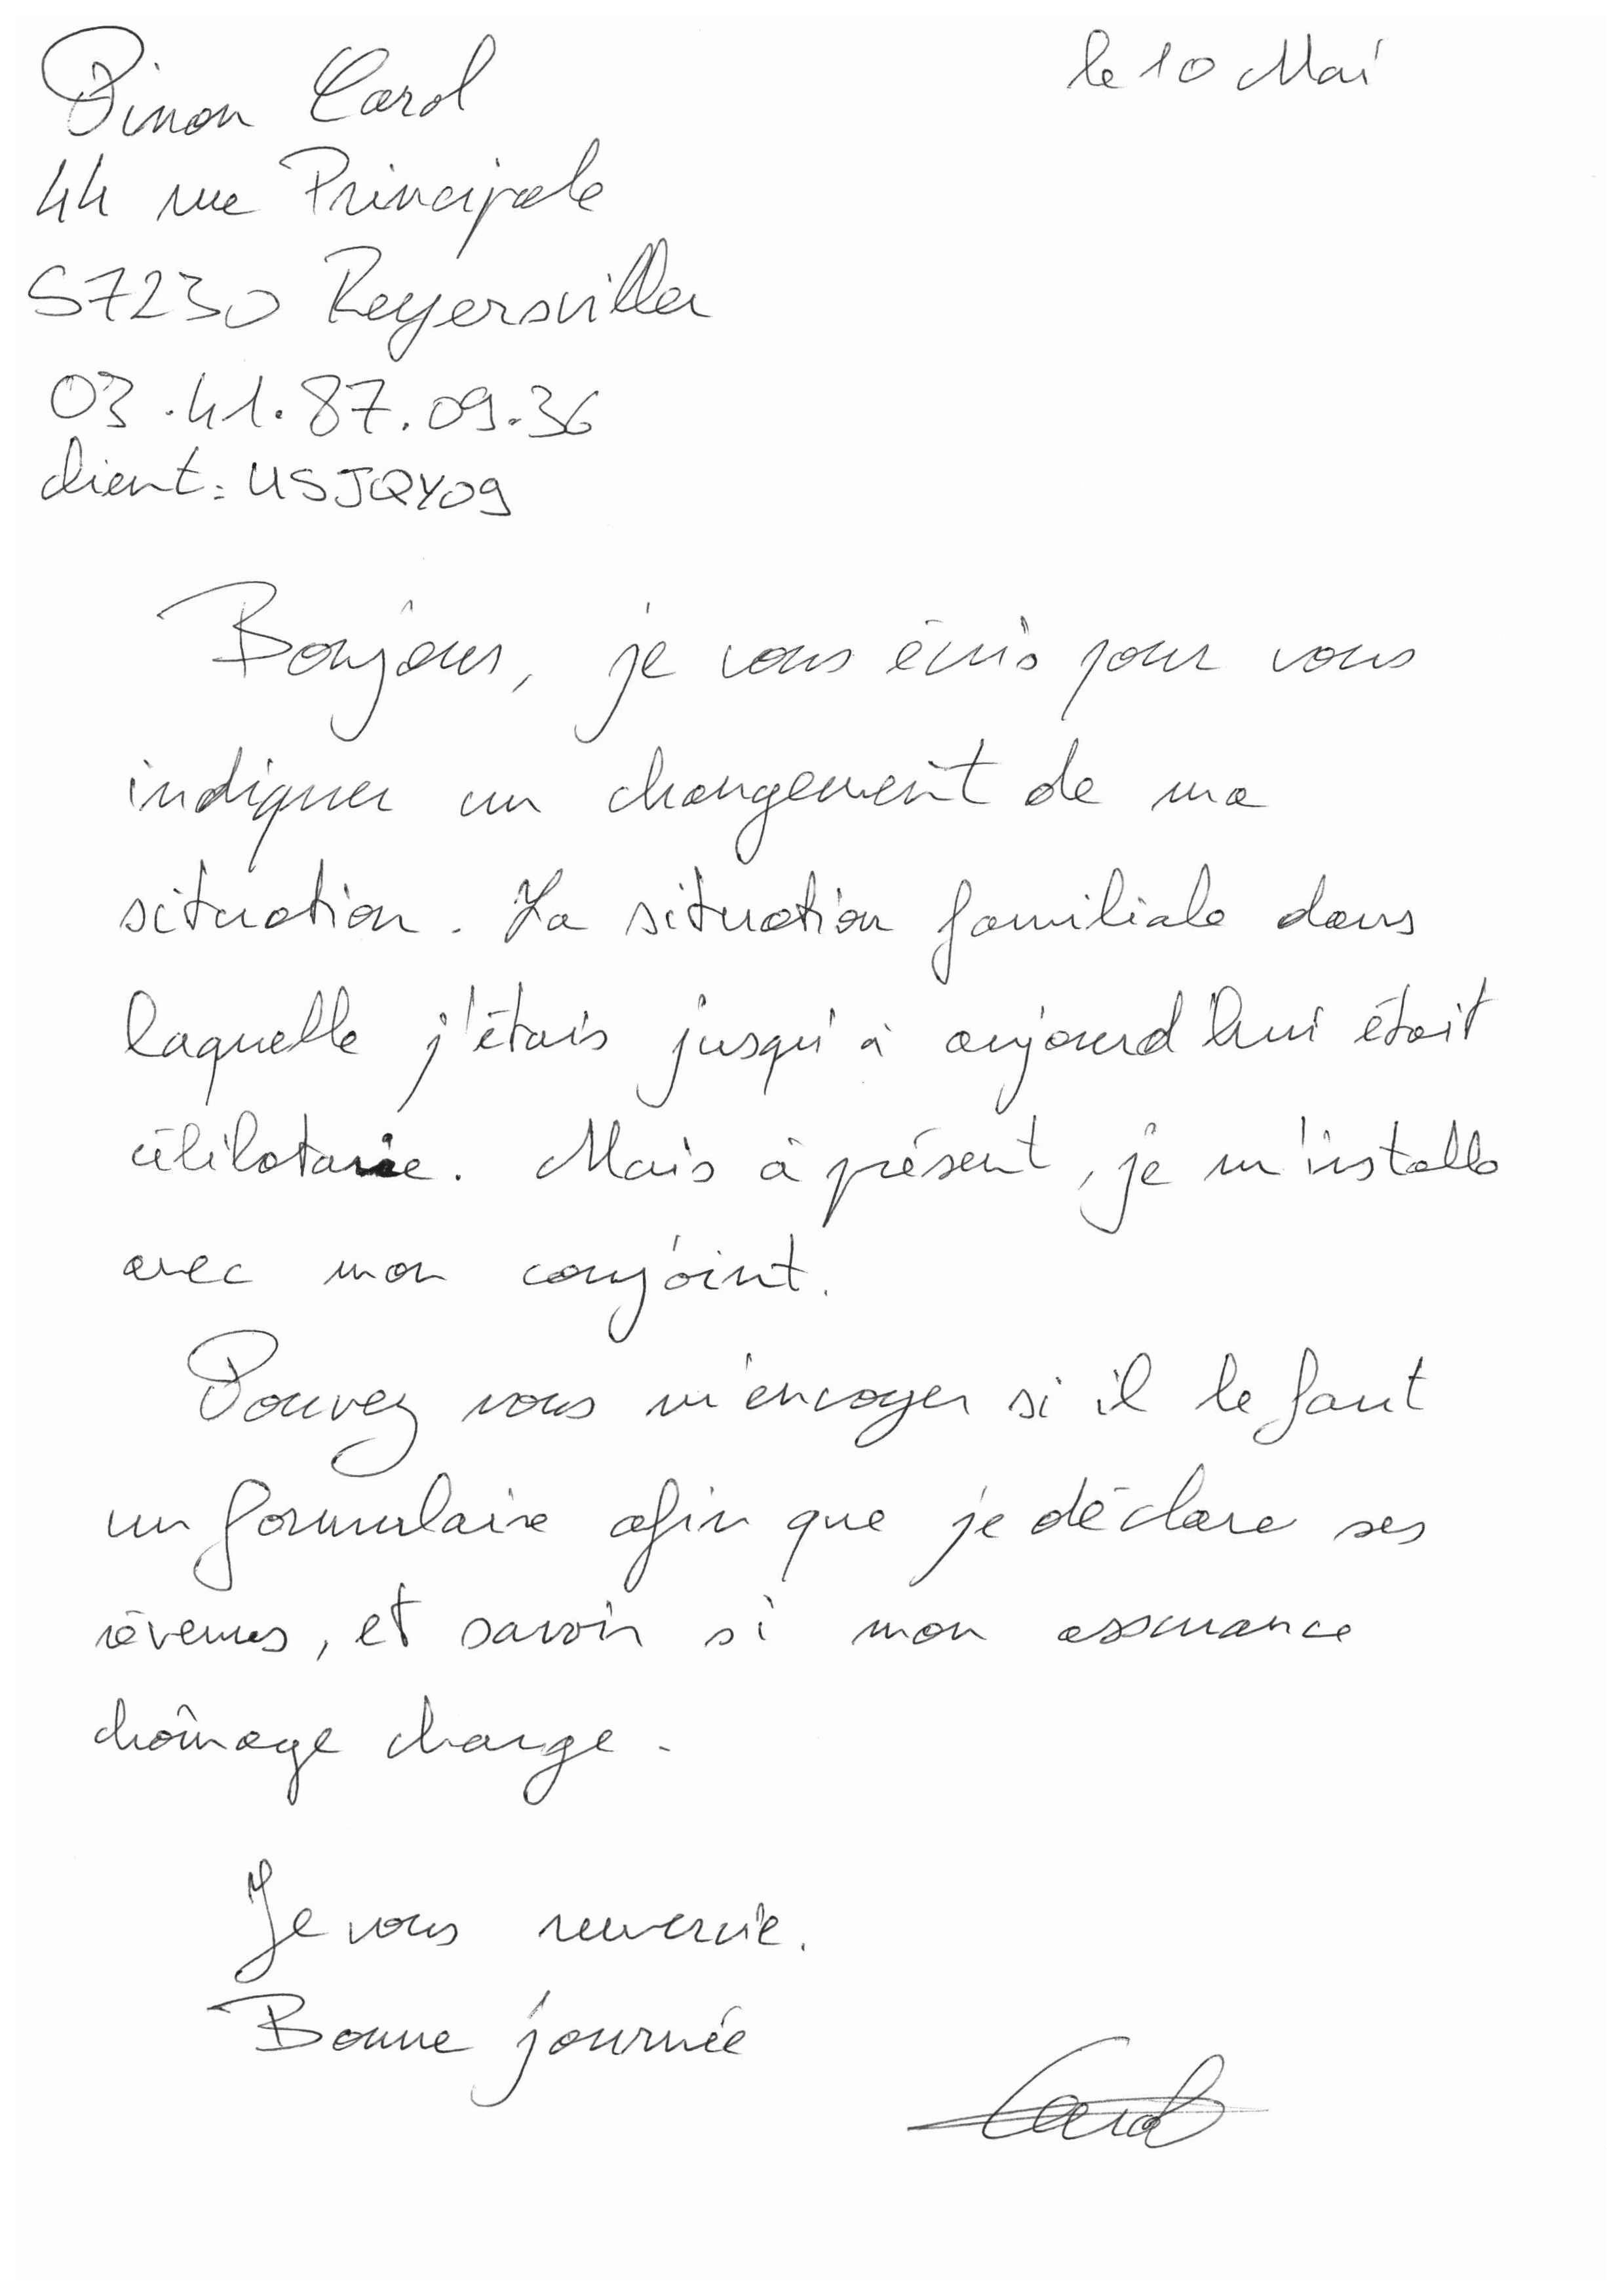 Pinon Carol
le 10 Mai
44 rue Principale
57230 Reyersviller
03.41.87.09.36
client: USJQY09
Bonjour, je vous écris pour vous
indiquer un changement de ma
situation. La situation familiale dans
laquelle j'étais jusqu'à aujourd'hui était
célibataire. Mais à présent, je m'installe
avec mon conjoint.
Pouvez vous m'envoyer si il le faut
un formulaire afin que je déclare ses
révenus, et savoir si mon assurance
chômage change.
Je vous remercie.
Bonne journée
Carol